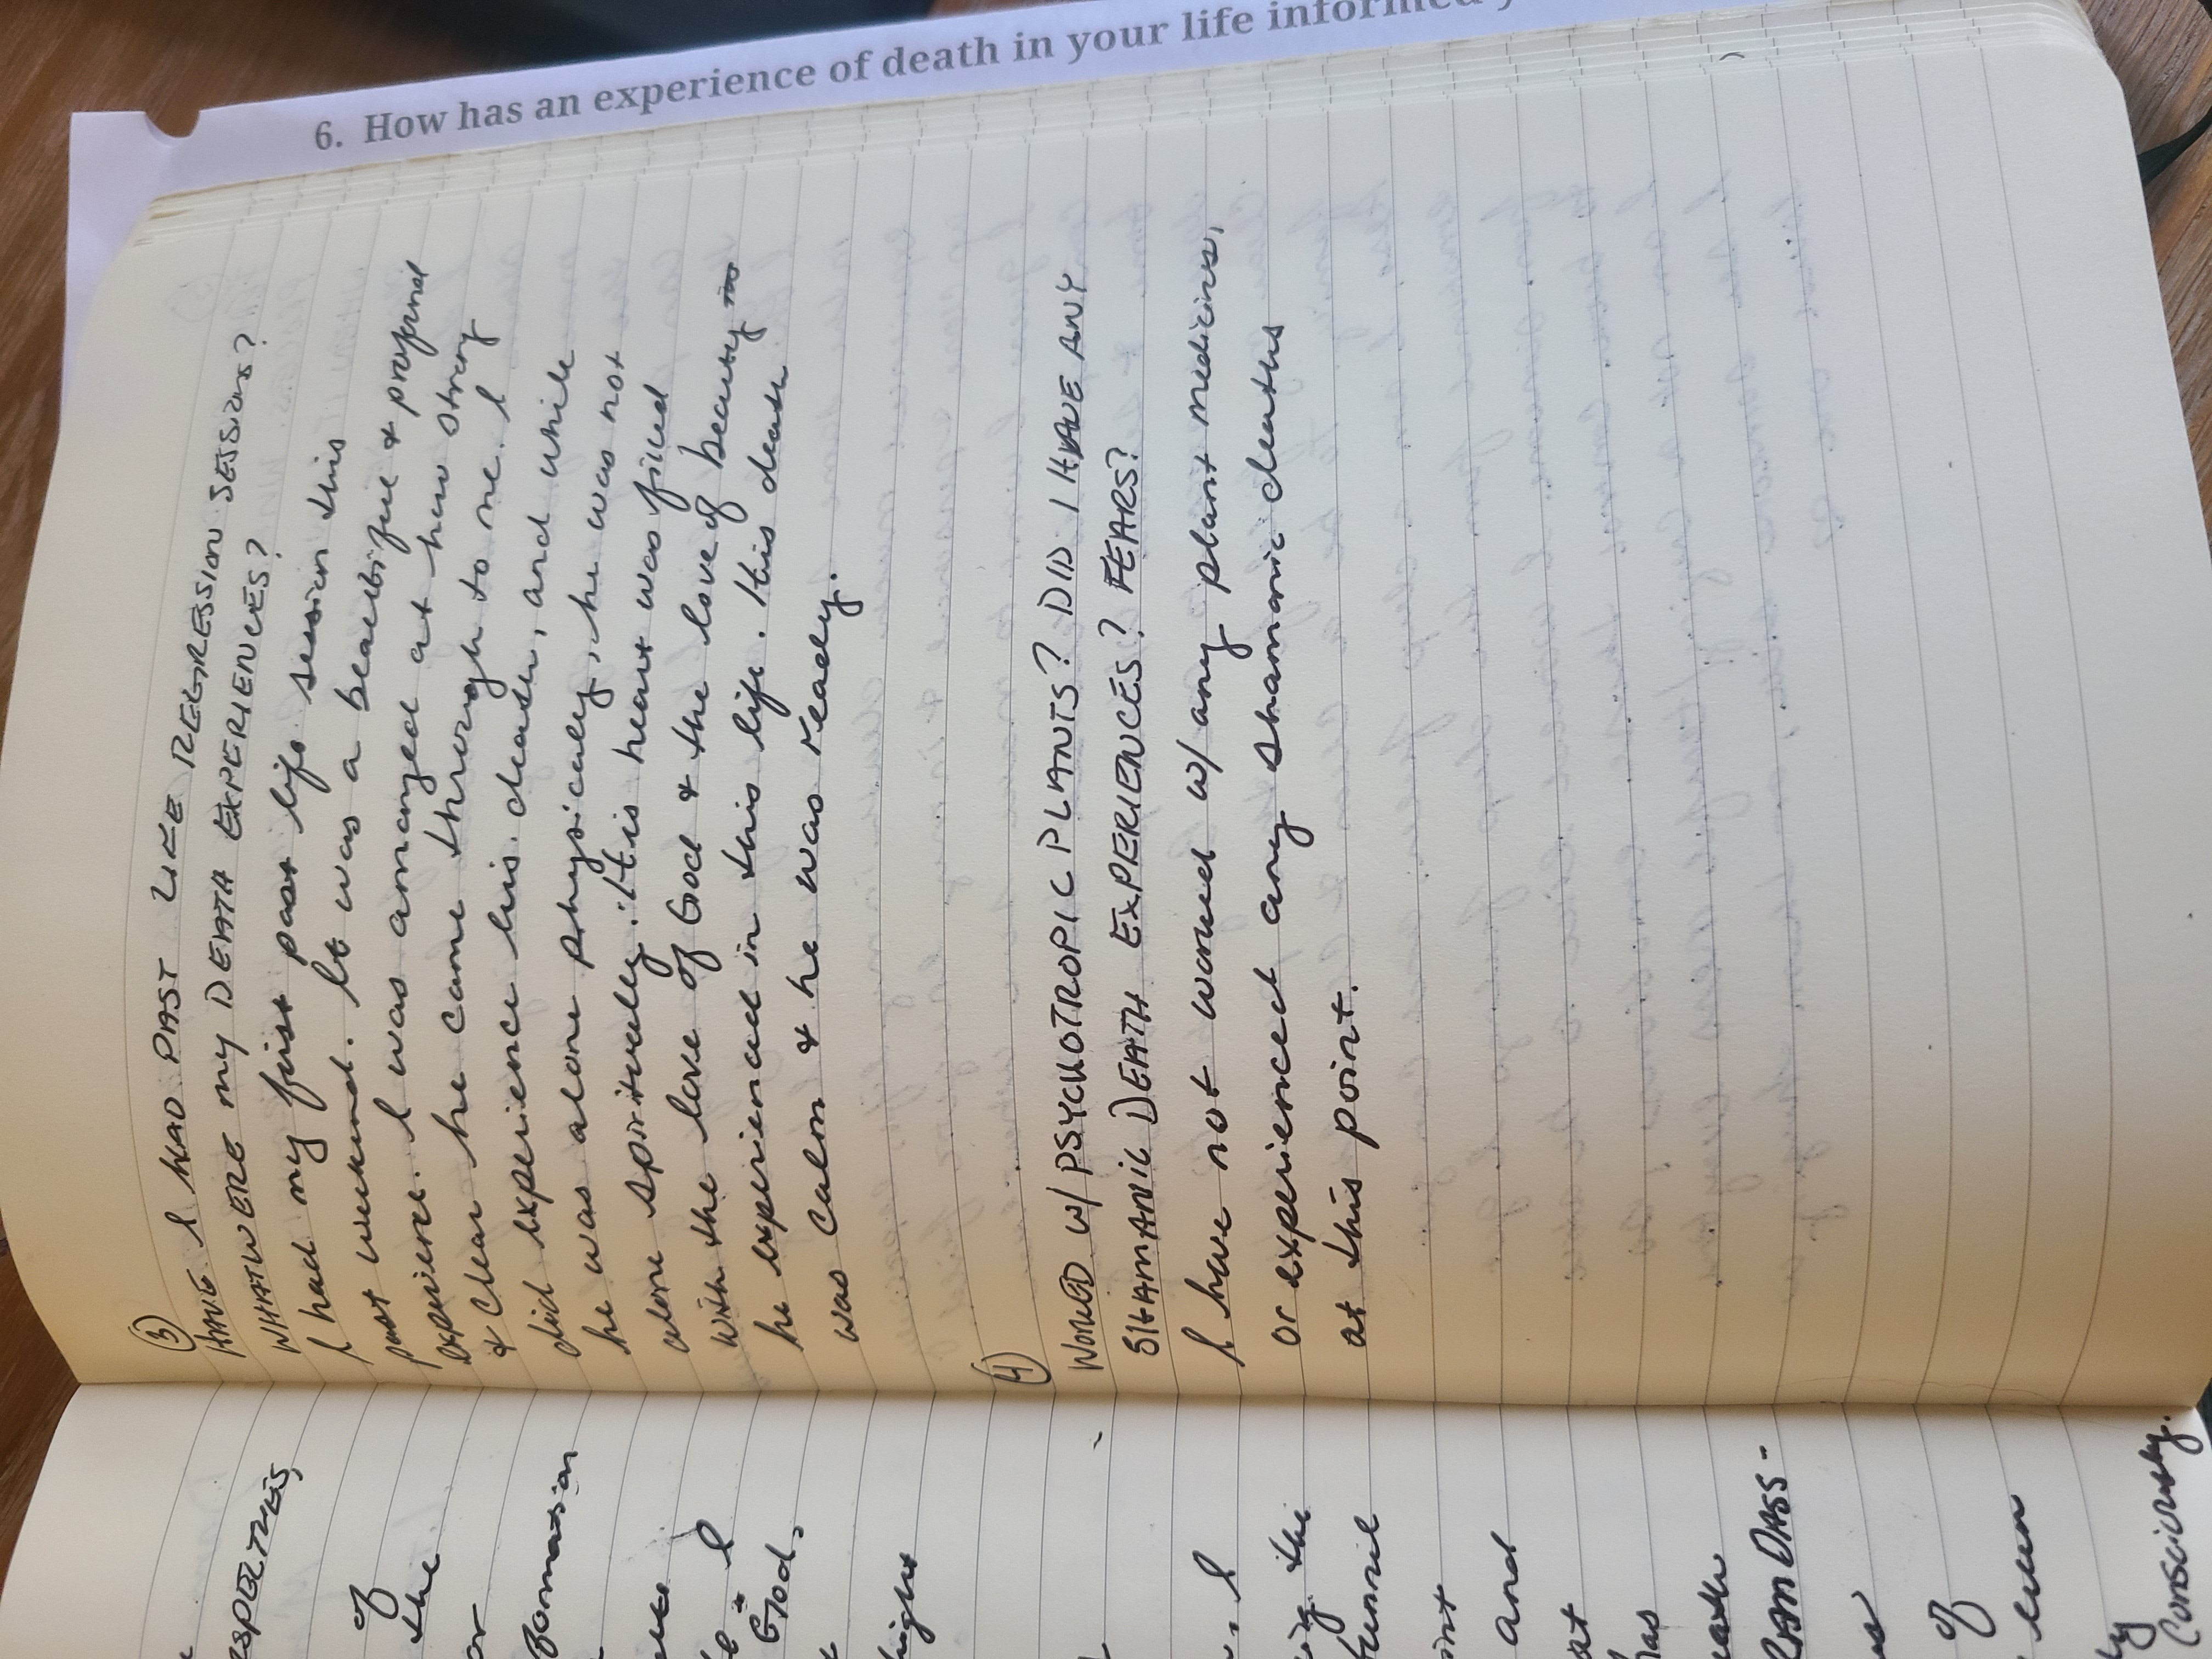 6. How has an experience of death in your life informed
③
HAVE I HAD PAST LIFE REGRESSION SESSIONS?
WHAT WERE MY DEATH EXPERIENCES?
I had my first past life session this
past weekend. It was a beautiful & profound
experience. I was amazed at how strong
& clear he came through to me. I
did experience his death, and while
he was alone physically, he was not
alone spiritually. His heart was filled
with the love of God & the love of beauty
he experienced in this life. His death
was calm & he was ready.
④
WORKED W/ PSYCHOTROPIC PLANTS? DID I HAVE ANY
SHAMANIC DEATH EXPERIENCES? FEARS?
I have not worked w/ any plant medicines,
or experienced any shamanic deaths
at this point.
of
the
or
I
God.
I
the
and
RAM DASS-
of
Consciously.